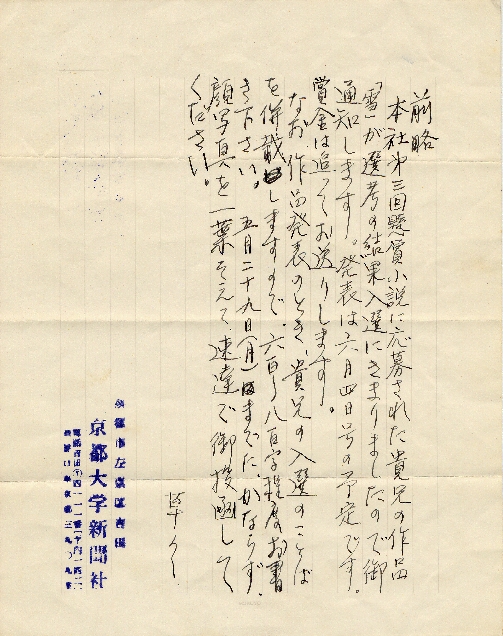 前略
本社第三回懸賞小説に応募された貴兄の作品
「雪」が選考の結果入選にきまりましたので御
通知します。発表は六月四日号の予定です。
賞金は追ってお送りします。
なお、作品発表のとき、貴兄の入選のことば
を併載しますので、六百〜八百字程度お書
き下さい。五月二十九日(月)までにかならず、
顔写真を一葉そえて速達で御投函して
ください。
草々
京都市左京区吉田
京都大学新聞社